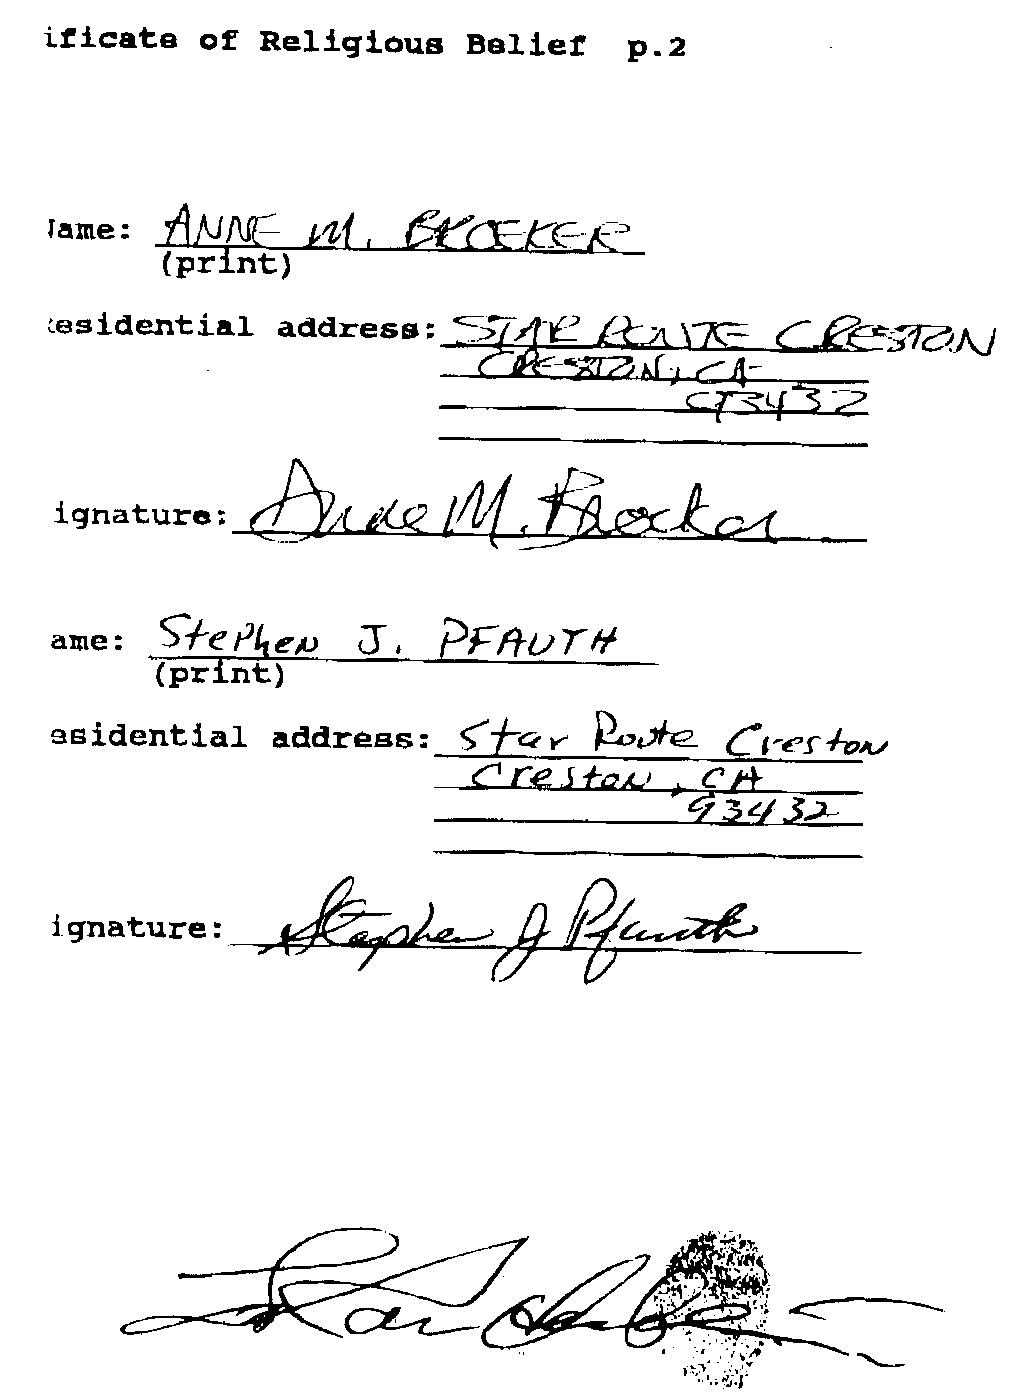 ificate of Religious Belief p.2
ame: ANNE M. BROEKER
(print)
esidential address: STAR ROUTE CRESTON
CRESTON, CA
93432
ignature: Anne M. Broeker
ame: Stephen J. PFAUTH
(print)
esidential address: Star Route Creston
Creston, CA
93432
ignature: Stephen J Pfauth